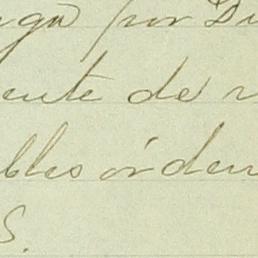 por Di
ente de
bles órden
S.